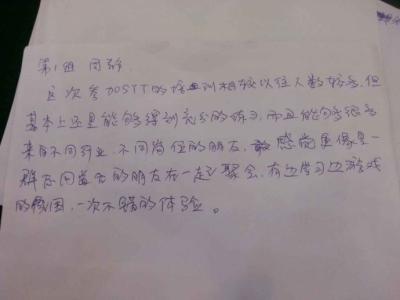 第1组 同行
这次参加STT的培训相较以往人数较多,但
基本上还是能够得到充分的练习,而且能够与很多
来自不同行业,不同岗位的朋友,感觉更像是一
群志同道合的朋友在一起聚会,有边学习边游戏
的氛围,一次不错的体验。